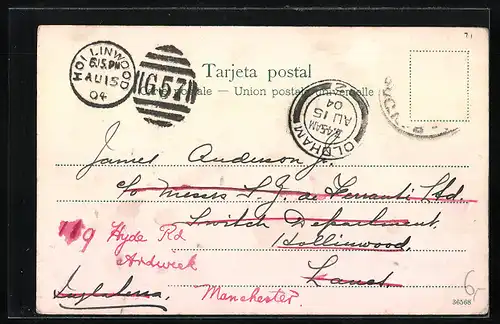 HOLLINWOOD
6.15.PM
AU 15
04
657
Tarjeta postal
Carte postale — Union postale universelle
OLDHAM
8.45AM
AU 15
04
James Anderson Jr.
c/o Messrs S. Z. de Ferranti Ltd
Switch Department.
Hollinwood.
Lancs
Inglaterra.
119 Hyde Rd
Ardwick
Manchester.
36568
6,-